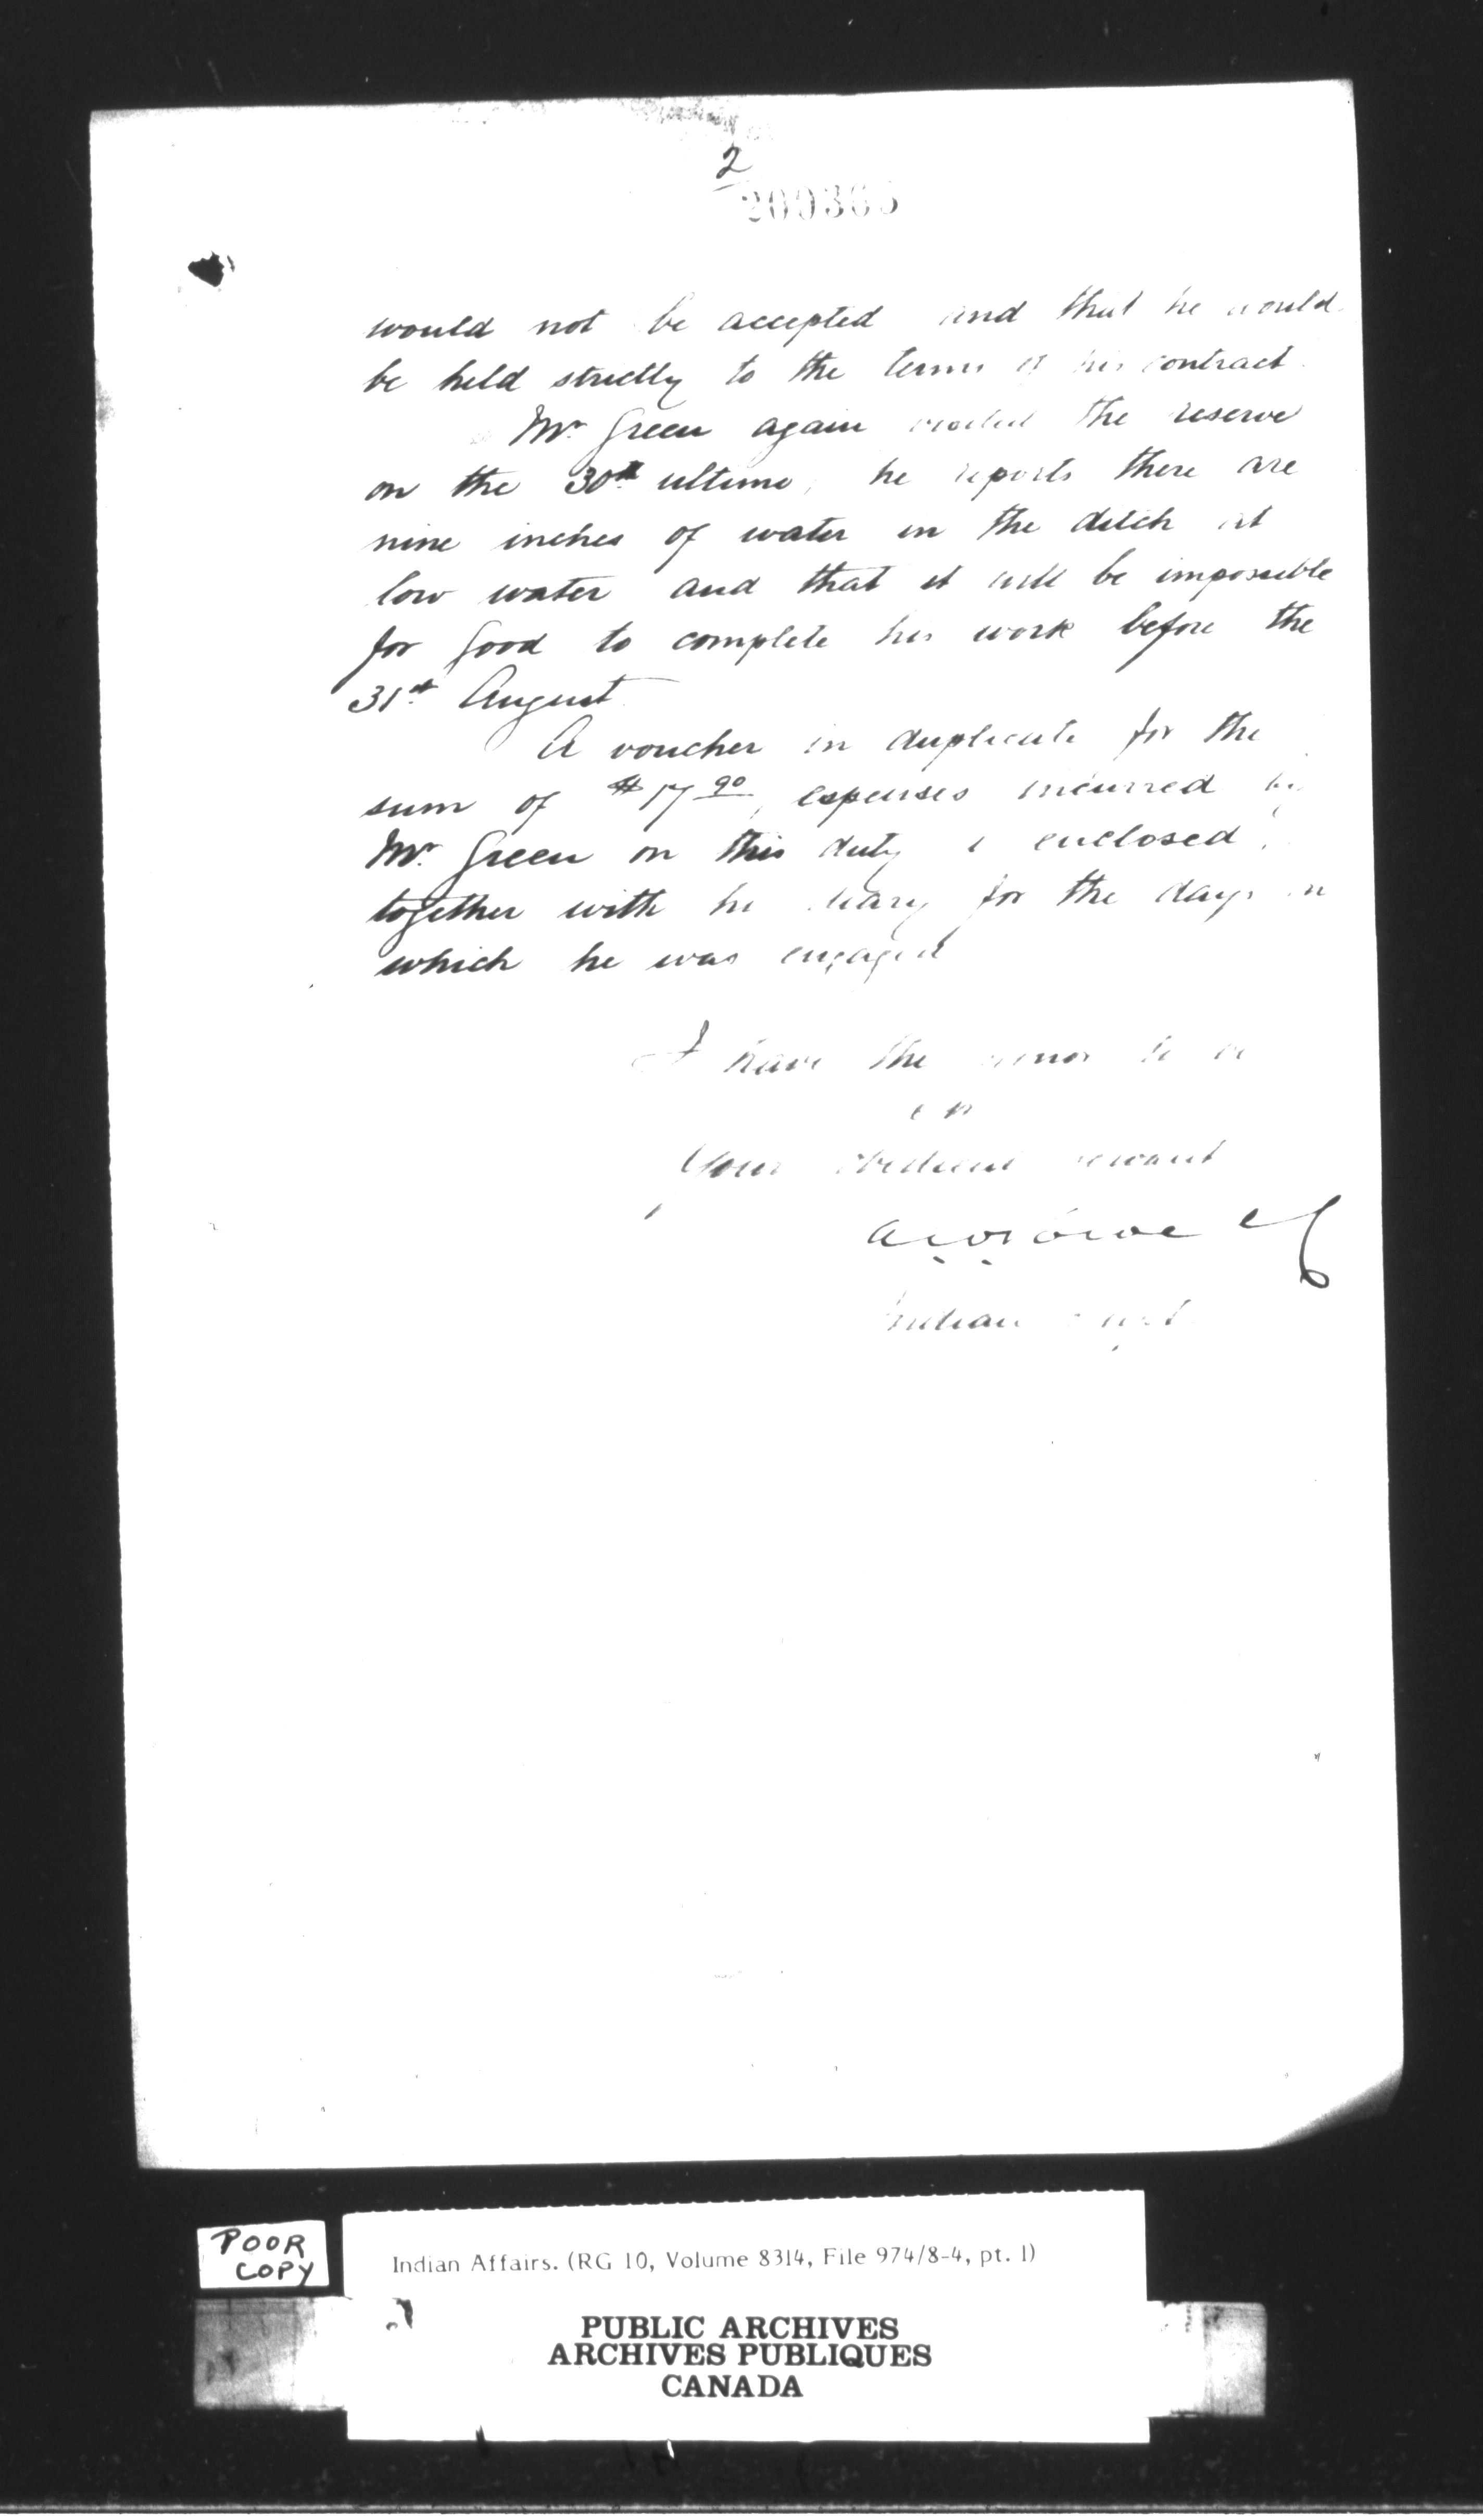 2
200365
would not be accepted and that he would
be held strictly to the terms of his contract.
Mr. Green again visited the reserve
on the 30th ultimo, he reports there are
nine inches of water in the ditch at
low water and that it will be impossible
for Good to complete his work before the
31st August
A voucher in duplicate for the
sum of $17.90, expenses incurred by
Mr. Green on this duty is enclosed,
together with his diary for the days on
which he was engaged
I have the honor to be
Sir
Your obedient servant
Indian Supt
POOR
COPY
Indian Affairs. (RG 10, Volume 8314, File 974/8-4, pt. 1)
PUBLIC ARCHIVES
ARCHIVES PUBLIQUES
CANADA